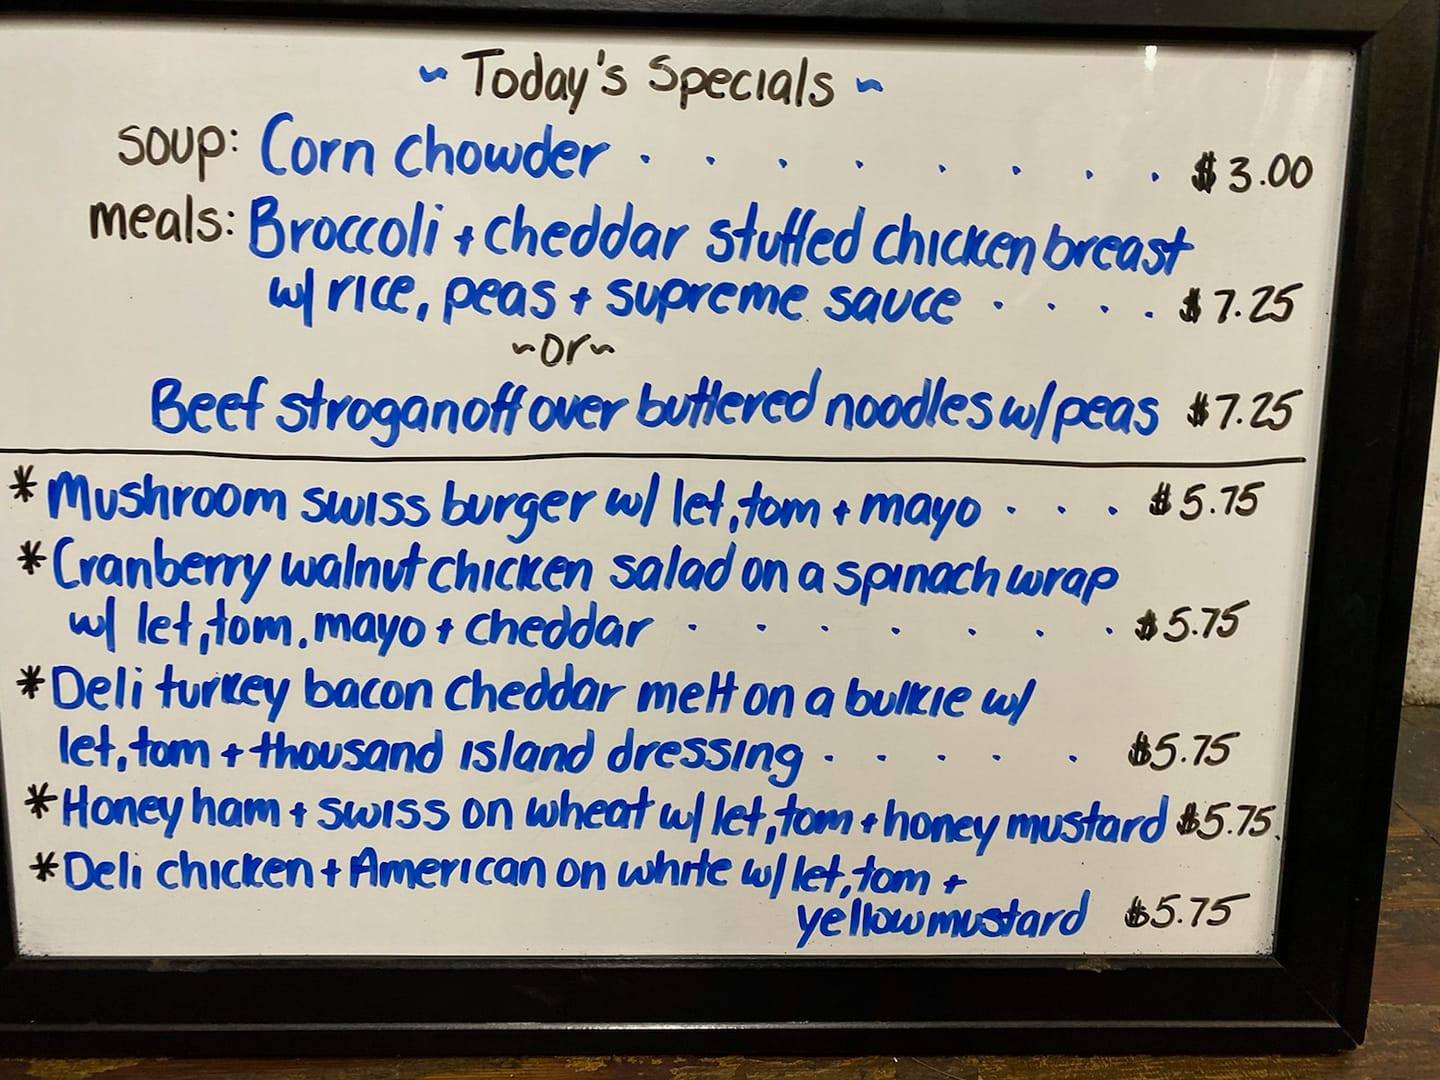 ~ Today's Specials ~
soup: Corn chowder . . . . . . . . $3.00
meals: Broccoli + cheddar stuffed chicken breast
w/ rice, peas + supreme sauce . . . . $7.25
~or~
Beef stroganoff over buttered noodles w/ peas $7.25
* Mushroom swiss burger w/ let, tom + mayo . . . $5.75
* Cranberry walnut chicken salad on a spinach wrap
w/ let, tom. mayo + cheddar . . . . . . . $5.75
* Deli turkey bacon cheddar melt on a bulkie w/
let, tom + thousand island dressing . . . . . $5.75
* Honey ham + swiss on wheat w/ let, tom + honey mustard $5.75
* Deli chicken + American on white w/ let, tom +
yellow mustard $5.75